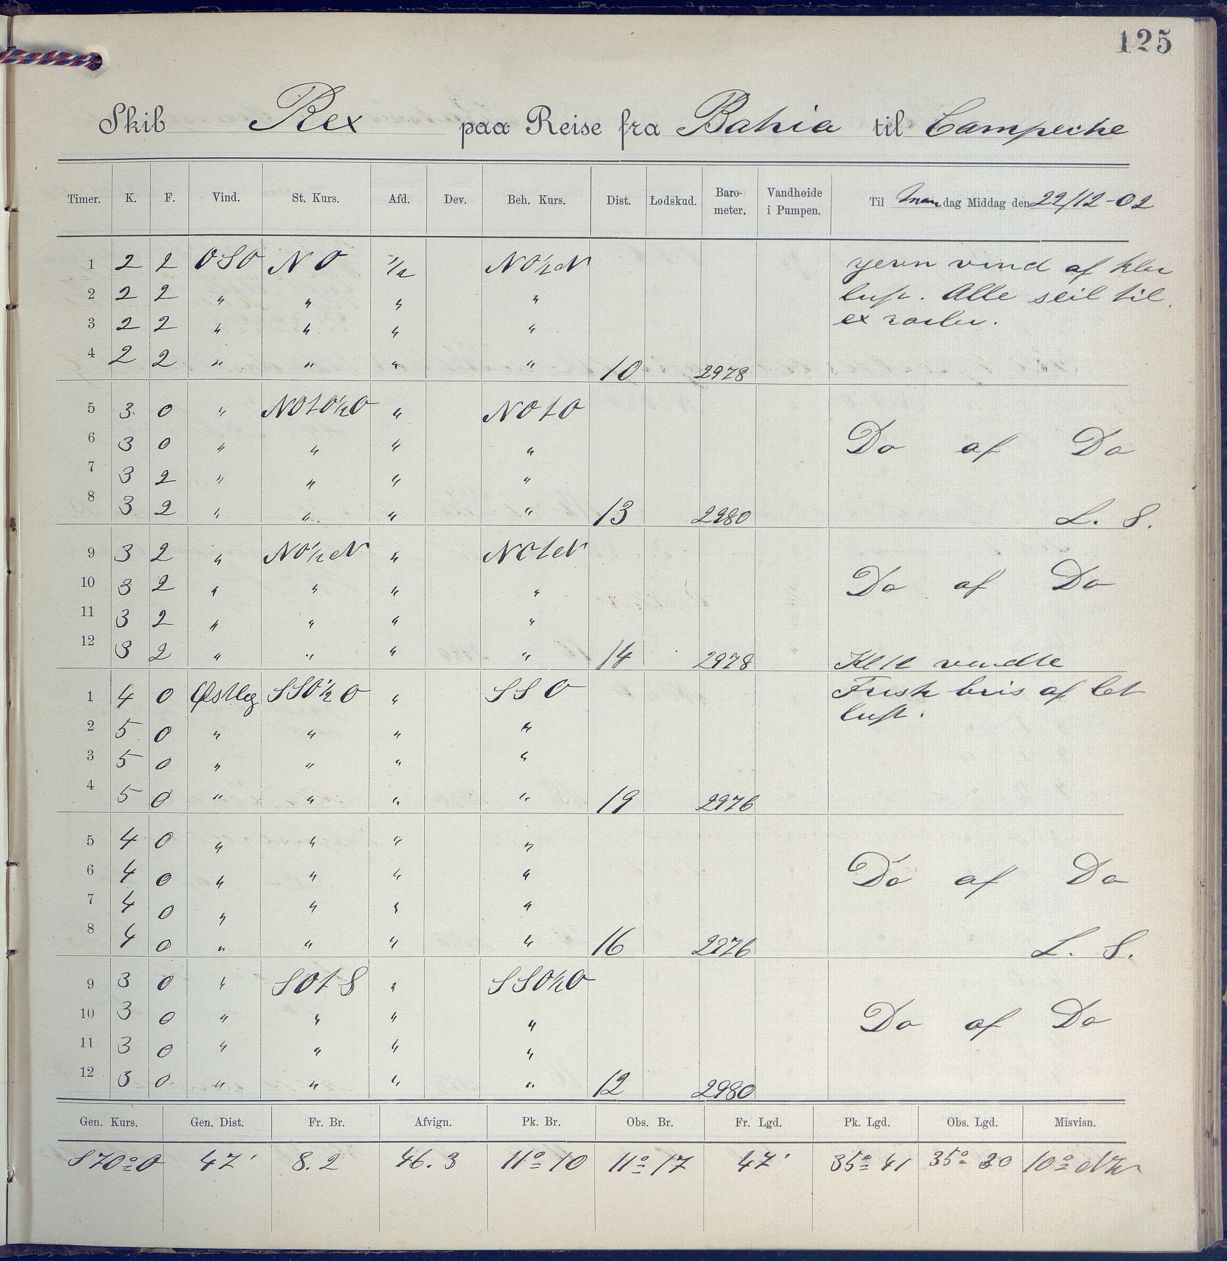 125
Skib Rex paa Reise fra Bahia til Campeche
Timer. K. F. Vind. St. Kurs. Afd. Dev. Beh. Kurs. Dist. Lodskud. Baro-meter. Vandhøide i Pumpen. Til Mandag Middag den 22/12-02
1 2 2 OSO NO 1/2 NO½N jevn vind af klar
2 2 2 " " " " luft. Alle seil til
3 2 2 " " " " ex
4 2 2 " " " " 10 2978
5 3 0 " NOtO½O " NOtO
6 3 0 " " " " Do af Do
7 3 2 " " " "
8 3 2 " " " " 13 2980 L. S.
9 3 2 " NO½N " NOtN
10 3 2 " " " " Do af Do
11 3 2 " " " "
12 3 2 " " " " 14 2978 vendte
1 4 0 Østlig SSO½O " SSO Frisk bris af let
2 5 0 " " " " luft.
3 5 0 " " " "
4 5 0 " " " " 19 2976
5 4 0 " " " "
6 4 0 " " " " Do af Do
7 4 0 " " " "
8 4 0 " " " " 16 2976 L. S.
9 3 0 " SOtS " SSO½O
10 3 0 " " " " Do af Do
11 3 0 " " " "
12 3 0 " " " " 12 2980
Gen. Kurs. Gen. Dist. Fr. Br. Afvign. Pk. Br. Obs. Br. Fr. Lgd. Pk. Lgd. Obs. Lgd. Misvisn.
S70°O 47' 8.2 46.3 11° 10 11° 17 47' 35° 41 35° 30 10° NV